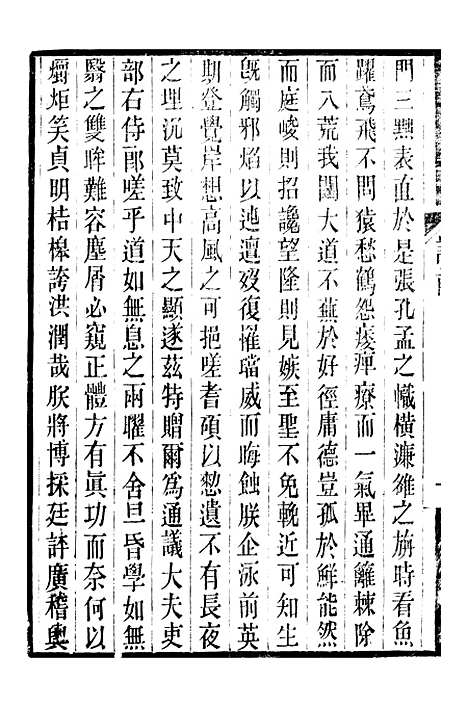 門三黜表直於是張孔孟之幟橫濂維之旃時看魚
躍鳶飛不問猿愁鶴怨痿痺療而一氣畢通籬棘除
而八荒我闥大道不蕪於好徑庸德豈孤於鮮能然
而庭崚則招讒望隆則見嫉至聖不免輓近可知生
旣觸邪焰以迍邅歿復罹璫威而晦蝕朕企泳前英
期登覺岸想高風之可挹嗟耆碩以憗遺不有長夜
之埋沉莫致中天之顯遂茲特贈爾爲通議大夫吏
部右侍郎嗟乎道如無息之兩曜不舍旦昏學如無
翳之雙眸難容塵屑必窺正體方有眞功而奈何以
爝炬笑貞明桔槔誇洪潤哉朕將博採廷評廣稽輿